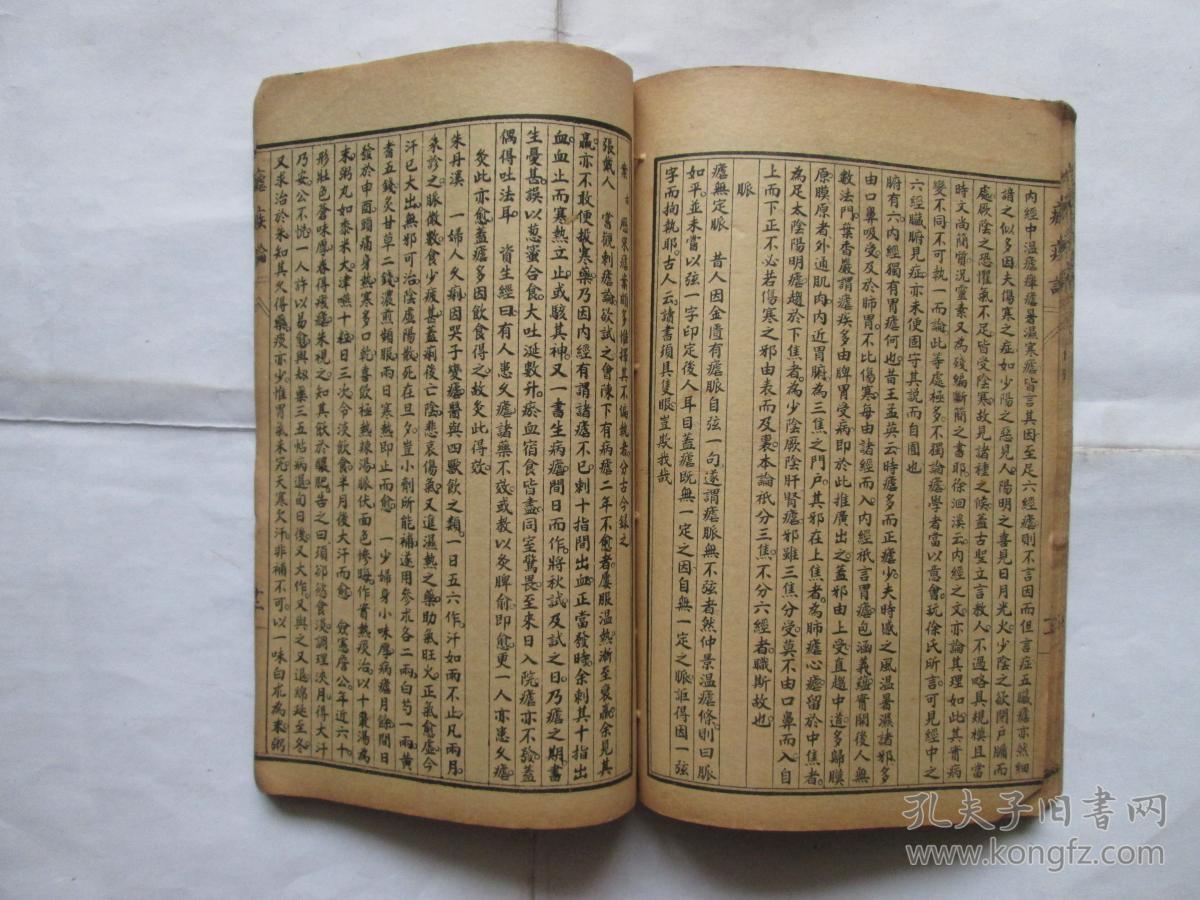 內經中溫瘧癉瘧暑濕寒瘧皆言其因至足六經瘧則不言因而但言症五臟瘧亦然細
譜之似多因夫傷寒之症如少陽之惡見人陽明之喜見日月光火少陰之欲閉戶牖而
處厥陰之恐懼氣不足皆受陰寒故見諸種之候蓋古聖立言教人不過略具規模且當
時文尚簡質況靈素又為殘編斷簡之書耶徐洄溪云內經之文亦論其理如此其實病
變不同不可執一而論此等處極多不獨論瘧學者當以意會玩徐氏所言可見經中之
六經臟腑見症亦未便固守其說而自囿也
腑有六內經獨有胃瘧何也昔王孟英云時瘧多而正瘧少夫時感之風溫暑濕諸邪多
由口鼻吸受及於肺胃不比傷寒每由諸經而入內經祇言胃瘧包涵蘊實開後人無
數法門葉香巖謂瘧疾多由脾胃受病即於此推廣出之蓋邪由上受直趨中道多歸膜
原膜原者外通肌肉內近胃腑為三焦之門戶其邪在上焦者為肺瘧心瘧留於中焦者
為足太陰陽明瘧趨於下焦者為少陰厥陰肝腎瘧邪雖三焦分受莫不由口鼻而入自
上而下正不必若傷寒之邪由表而及裏本論祇分三焦不分六經者職斯故也
脈
瘧無定脈　昔人因金匱有瘧脈自弦一句遂謂瘧脈無不弦者然仲景溫瘧條則曰脈
如平並未嘗以弦一字印定後人耳目蓋瘧既無一定之因自無一定之脈詎得因一弦
字而拘執耶古人云讀書須具隻眼豈欺我哉
張戴人　嘗觀刺瘧論欲試之會陳下有病瘧二年不愈者屢服溫熱漸至衰羸余見其
羸亦不敢便投寒藥乃因內經有謂諸瘧不已刺十指間出血正當發時余刺其十指出
血血止而寒熱立止或駭其神又一書生病瘧間日而作將秋試及試之日乃瘧之期書
生憂甚誤以蔥蜜合食大吐涎數升瘀血宿食皆盡同室驚畏至來日入院瘧亦不發蓋
偶得吐法耳　資生經曰有人患久瘧諸藥不效或教以灸脾俞即愈更一人亦患久瘧
灸此亦愈蓋瘧多因飲食得之故灸此得效
朱丹溪　一婦人久痢因哭子變瘧醫與四獸飲之類一日五六作汗如雨不止凡兩月
朱診之脈微數食少疲甚蓋痢後亡陰悲哀傷氣又進濕熱之藥助氣旺火正氣愈虛今
汗已大出無邪可治陰虛陽散死在旦夕豈小劑所能補遂用參朮各二兩白芍一兩黃
耆五錢炙甘草二錢濃煎頻服兩日寒熱即止而愈　一少婦身小味厚病瘧月餘間日
發於申酉頭痛身熱寒多口乾喜飲極熱辣湯脈伏面色慘晦作實熱痰治以十棗湯為
末粥丸如黍米大津嚥十粒日三次令淡飲食半月後大汗而愈　僉憲詹公年近六十
形壯色蒼味厚春得痰瘧朱視之知其飫於醲肥告之曰須卻慾食淡調理浹月得大汗
乃安公不悅一人許以易愈與劫藥三五帖病退旬日後又大作又與之又退綿延至冬
又求治於朱知其久得藥痰亦少惟胃氣未完天寒欠汗非補不可以一味白朮為末粥